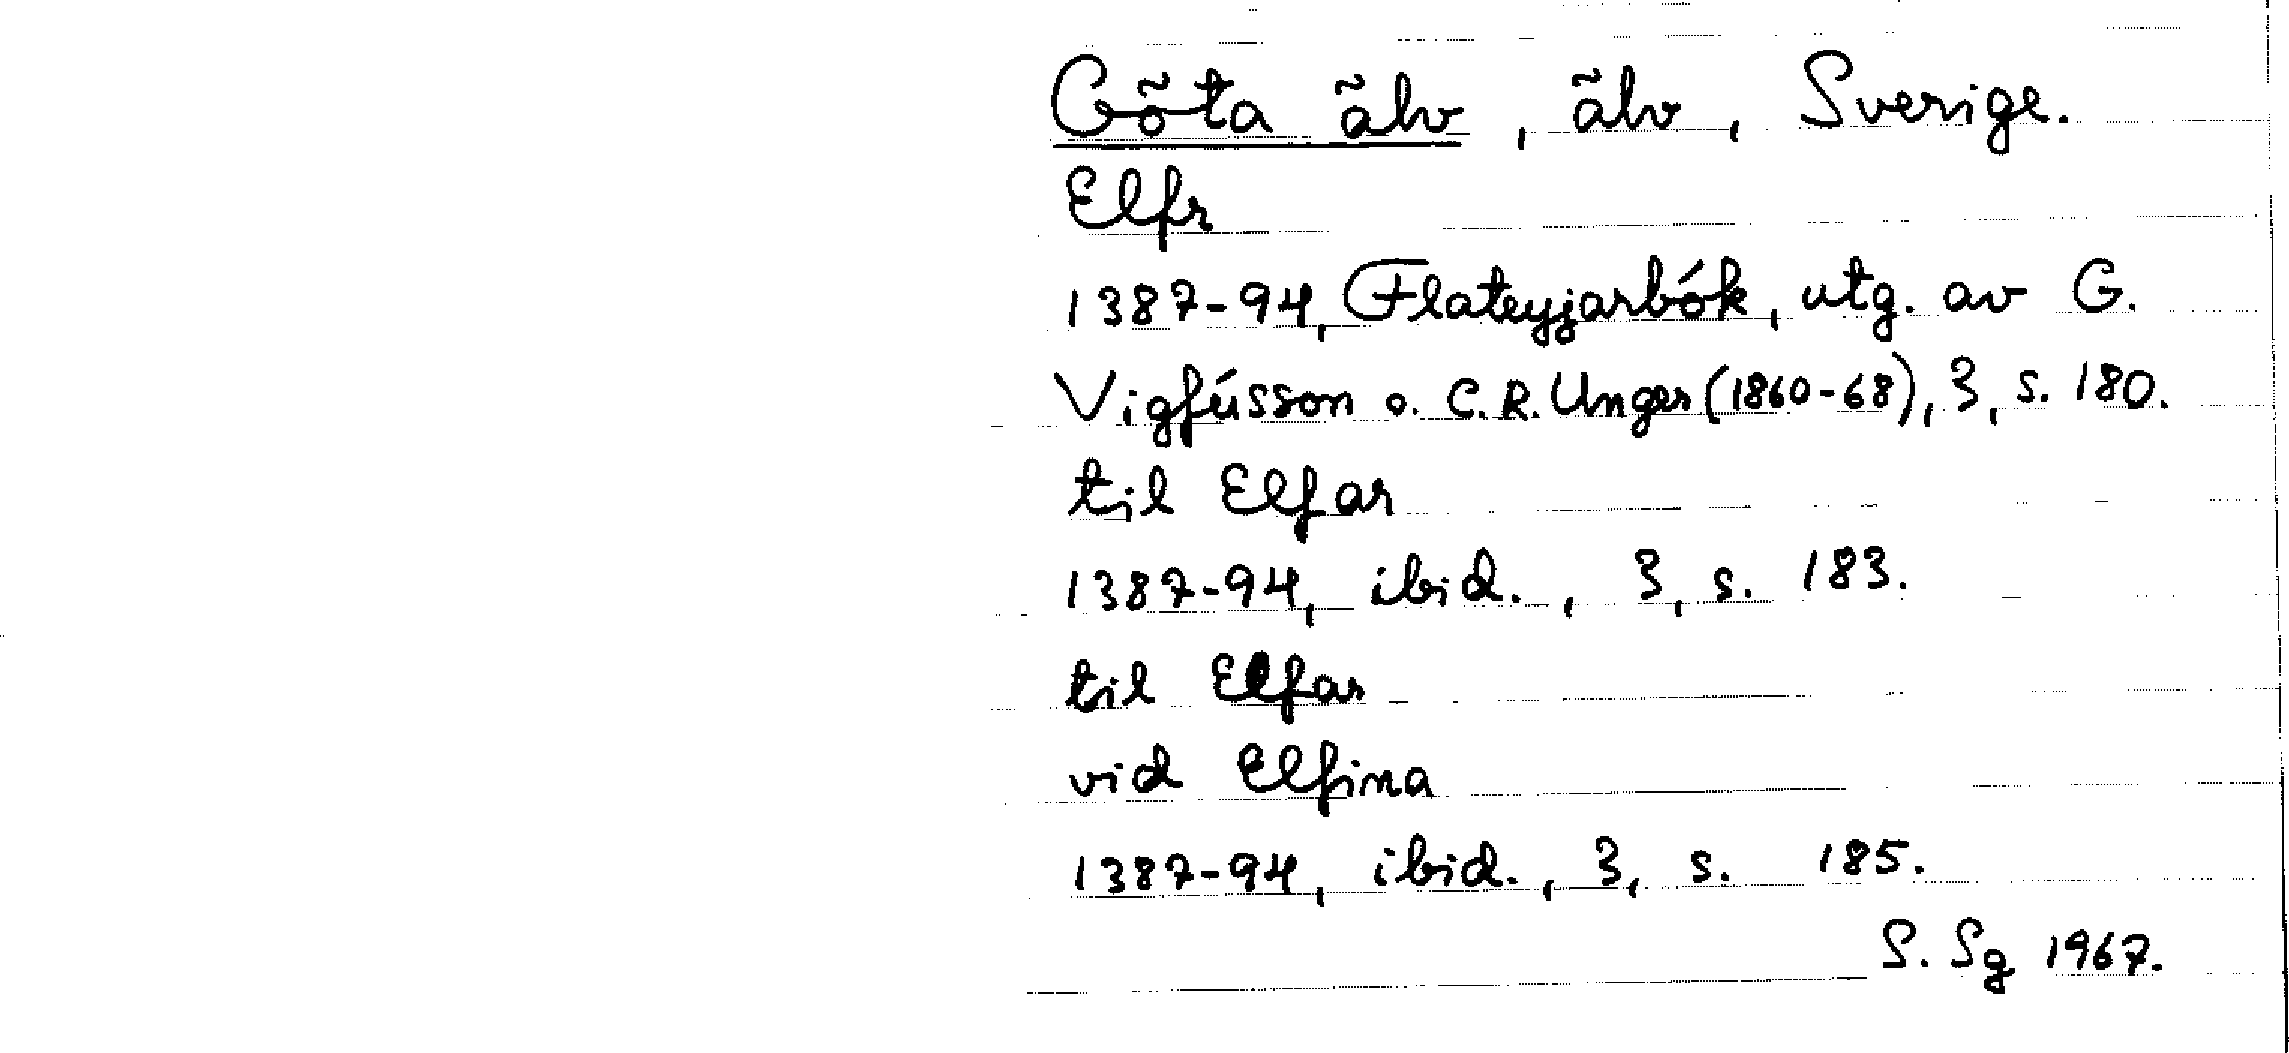 Göta älv, älv, Sverige.
Elfr
1387-94, Flateyjarbók, utg. av G.
Vigfússon o. C.R. Unger (1860-68), 3, s. 180.
til Elfar
1387-94, ibid., 3, s. 183.
til Elfar
vid Elfina
1387-94, ibid., 3, s. 185.
S. Sg 1967.